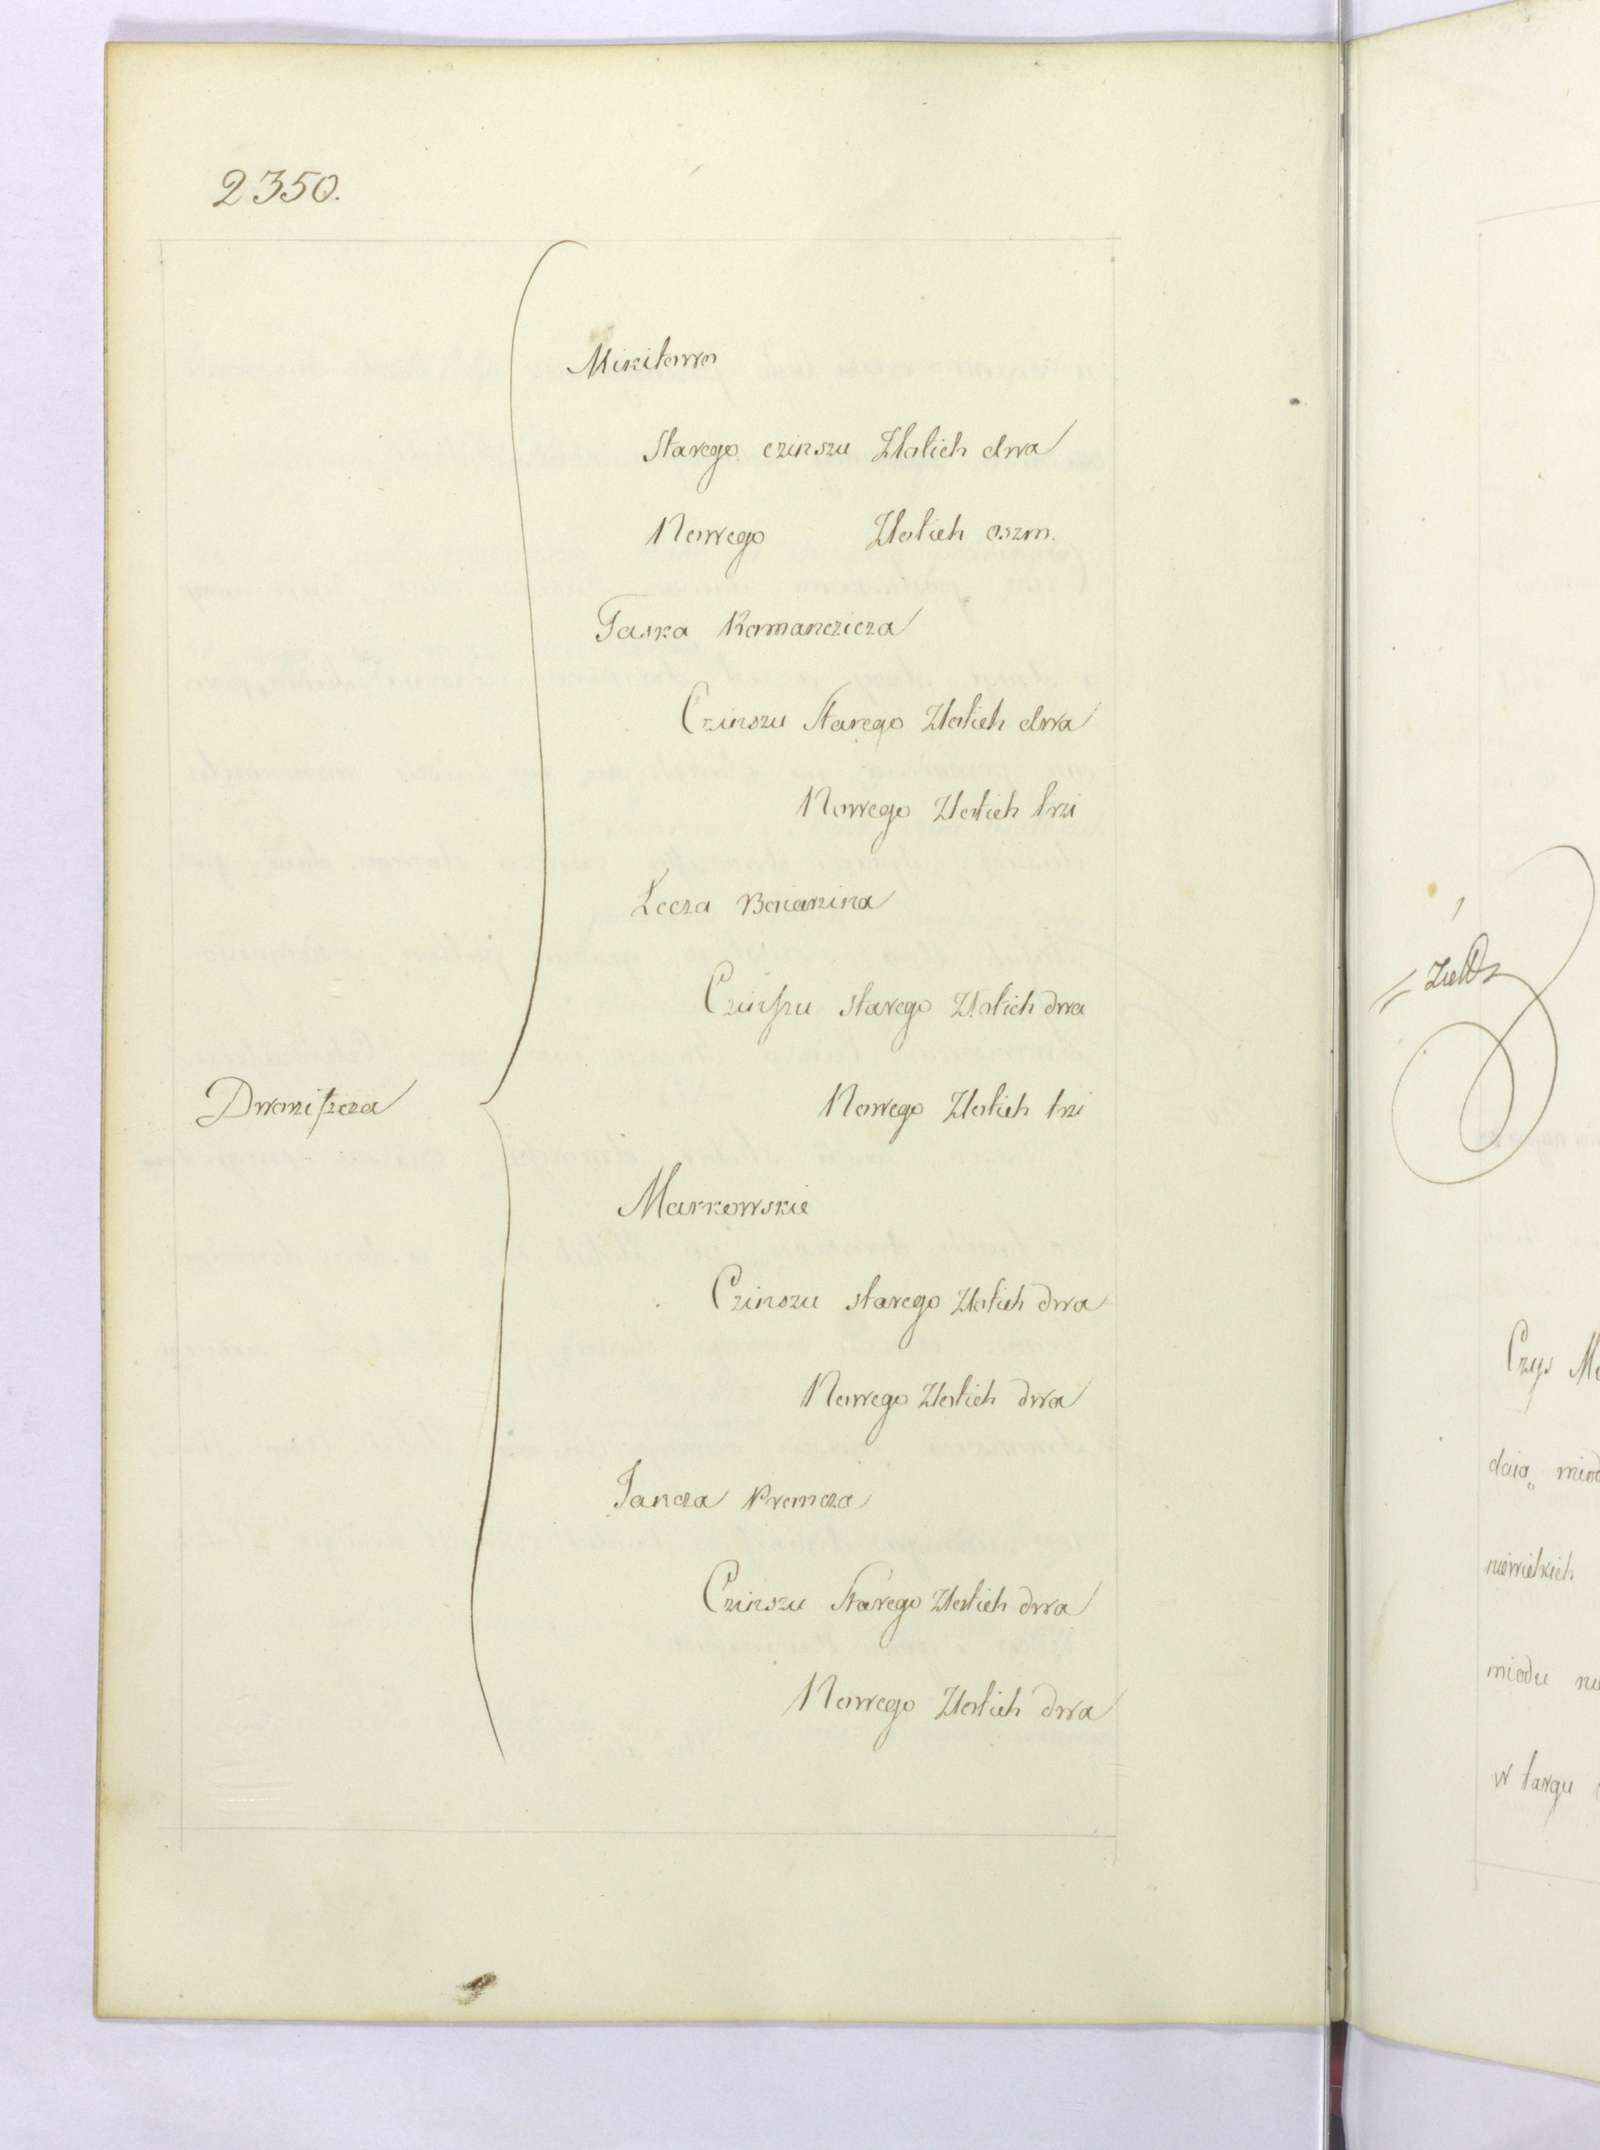 2350.
Mikitowa
Starego czinszu Złotich dwa
Nowego Złotich oszm.
Taska Romanczicza
Czinszu Starego Złotich dwa
Nowego Złotich trzi
Lecza
Czinszu starego Złotich dwa
Dworziszcza
Nowego Złotich trzi
Markowskie
Czinszu starego Złotich dwa
Nowego Złotich dwa
Jancza
Czinszu Starego Złotich dwa
Nowego Złotich dwa
Czys
daią
niewielkich
miodu
w targu